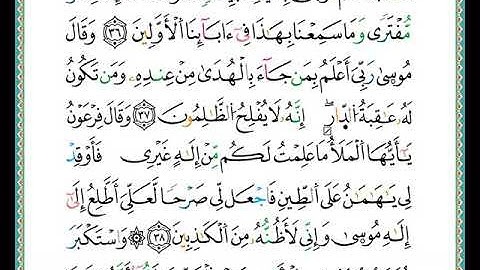 مُّفْتَرًى وَمَا سَمِعْنَا بِهَٰذَا فِىٓ ءَابَآئِنَا ٱلْأَوَّلِينَ ٣٦ وَقَالَ
مُوسَىٰ رَبِّىٓ أَعْلَمُ بِمَن جَآءَ بِٱلْهُدَىٰ مِنْ عِندِهِۦ وَمَن تَكُونُ
لَهُۥ عَٰقِبَةُ ٱلدَّارِ ۖ إِنَّهُۥ لَا يُفْلِحُ ٱلظَّٰلِمُونَ ٣٧ وَقَالَ فِرْعَوْنُ
يَٰٓأَيُّهَا ٱلْمَلَأُ مَا عَلِمْتُ لَكُم مِّنْ إِلَٰهٍ غَيْرِى فَأَوْقِدْ
لِى يَٰهَٰمَٰنُ عَلَى ٱلطِّينِ فَٱجْعَل لِّى صَرْحًا لَّعَلِّىٓ أَطَّلِعُ إِلَىٰٓ
إِلَٰهِ مُوسَىٰ وَإِنِّى لَأَظُنُّهُۥ مِنَ ٱلْكَٰذِبِينَ ٣٨ وَٱسْتَكْبَرَ